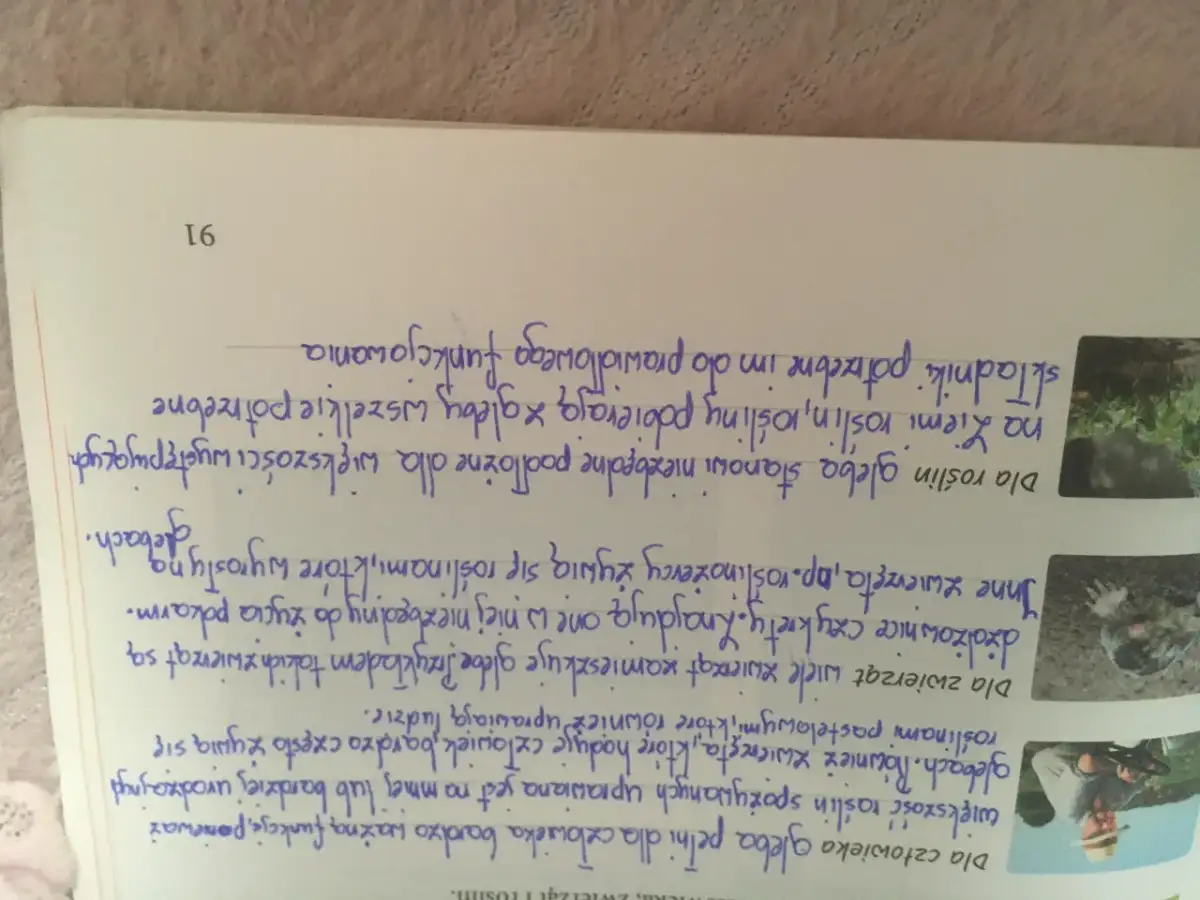 zwierząt i roślin.
Dla człowieka gleba pełni dla człowieka bardzo ważną funkcję, ponieważ
większość roślin spożywanych uprawiana jest na mniej lub bardziej urodzajnych
glebach. Również zwierzęta, które hoduje człowiek, bardzo często żywią się
roślinami pastelowymi, które również uprawiają ludzie.
Dla zwierząt wiele zwierząt zamieszkuje glebę. Przykładem takich zwierząt są
dżdżownice czy krety. Znajdują one w niej niezbędny do życia pokarm.
Inne zwierzęta, np. roślinożercy żywią się roślinami, które wyrosły na
glebach.
Dla roślin gleba stanowi niezbędne podłożne dla większości występujących
na Ziemi roślin, rośliny pobierają z gleby wszelkie potrzebne
składniki potrzebne im do prawidłowego funkcjowania
91